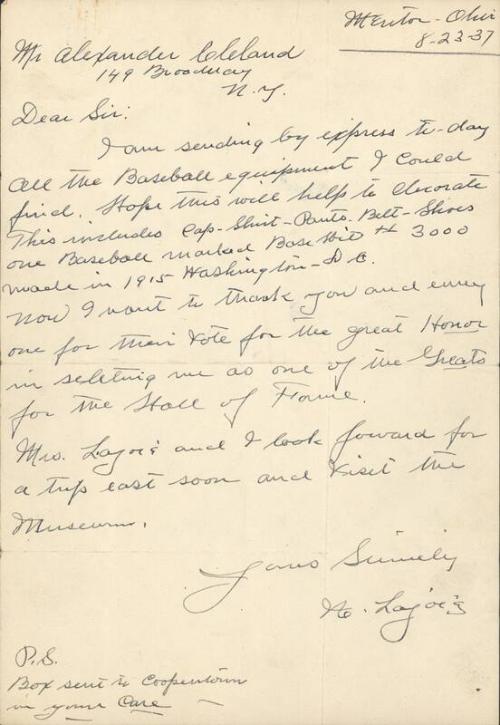 Mentor-Ohio
8-23-37
Mr Alexander Cleland
149 Broadway
N.Y.
Dear Sir:
I am sending by express to-day
all the Baseball equipment I could
find. Hope this will help to decorate
This includes Cap-Shirt-Pants-Belt-Shoes
one Baseball marked Base Hit # 3000
made in 1915 Washington-D.C.
Now I want to thank you and every
one for their vote for the great Honor
in seleting me as one of the Greats
for the Hall of Fame.
Mrs. Lajoie and I look forward for
a trip east soon and visit the
Museum.
Yours Sincerely
N. Lajoie
P.S.
Box sent to Cooperstown
in your Care